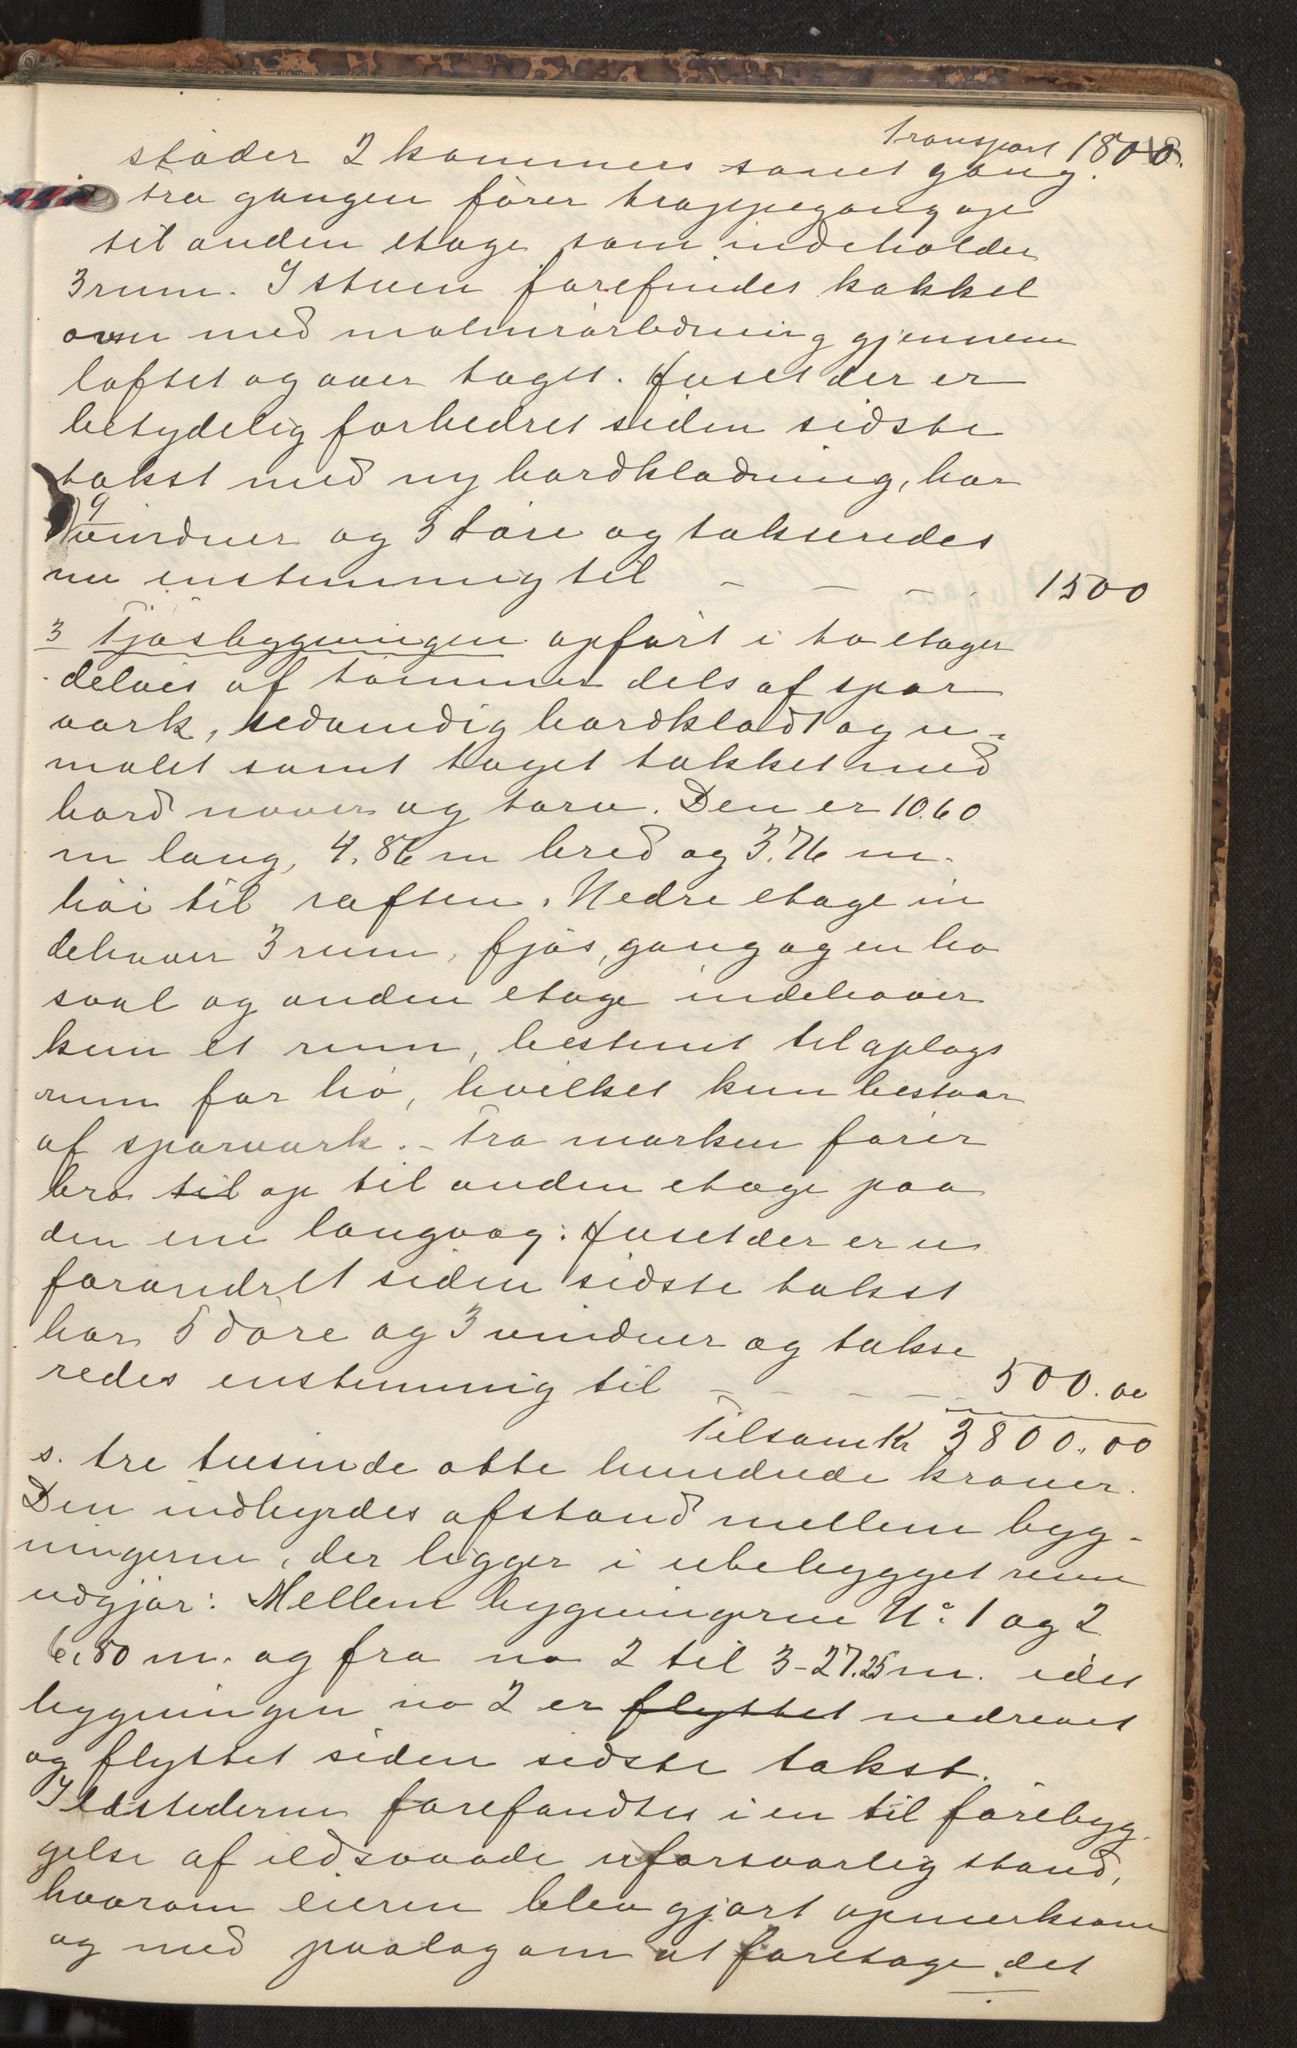 Transport 1800.
stader 2 kammers samt gang.
Fra gangen fører trappegang op
til anden etage som indeholder
3 rum. I stuen forefindes kakkel
ovn med malmrørledning gjennem
loftet og over taget. Huset der er
betydelig forbedret siden sidste
takst med ny bordklædning, har
9 vinduer og 3 døre og takseredes
nu enstemmig til - - - 1500
3 Fjøsbygningen opført i to etager
delvis af tømmer dels af spær
værk, udvendig bordklædt og u-
malet samt taget tækket med
bord næver og torv. Den er 10.60
m lang, 4.86 m bred og 3.76 m.
høi til raften. Nedre etage in
dehaver 3 rum, fjøs, gang og en hø
sval og anden etage indehaver
kun et rum, bestemt til oplags
rum for hø, hvilket kun bestaar
af spærværk. - Fra marken fører
bro til op til anden etage paa
den ene langvæg. Huset der er u
forandret siden sidste takst
har 5 døre og 3 vinduer og takse
redes enstemmig til - - - - 500.00
Tilsam Kr 3800.00
s. tre tusinde otte hundrede kroner.
Den indbyrdes afstand mellem byg-
ningerne, der ligger i ubebygget rum
udgjør: Mellem bygningerne No. 1 og 2
6,80 m. og fra no 2 til 3 - 27.25 m. idet
bygningen no 2 er flyttet nedrevet
og flyttet siden sidste takst.
Ildstederne forefandtes i en til forebyg
gelse af ildsvaade uforsvarlig stand,
hvorom eieren blev gjort opmerksom
og med paalæg om at foretage det